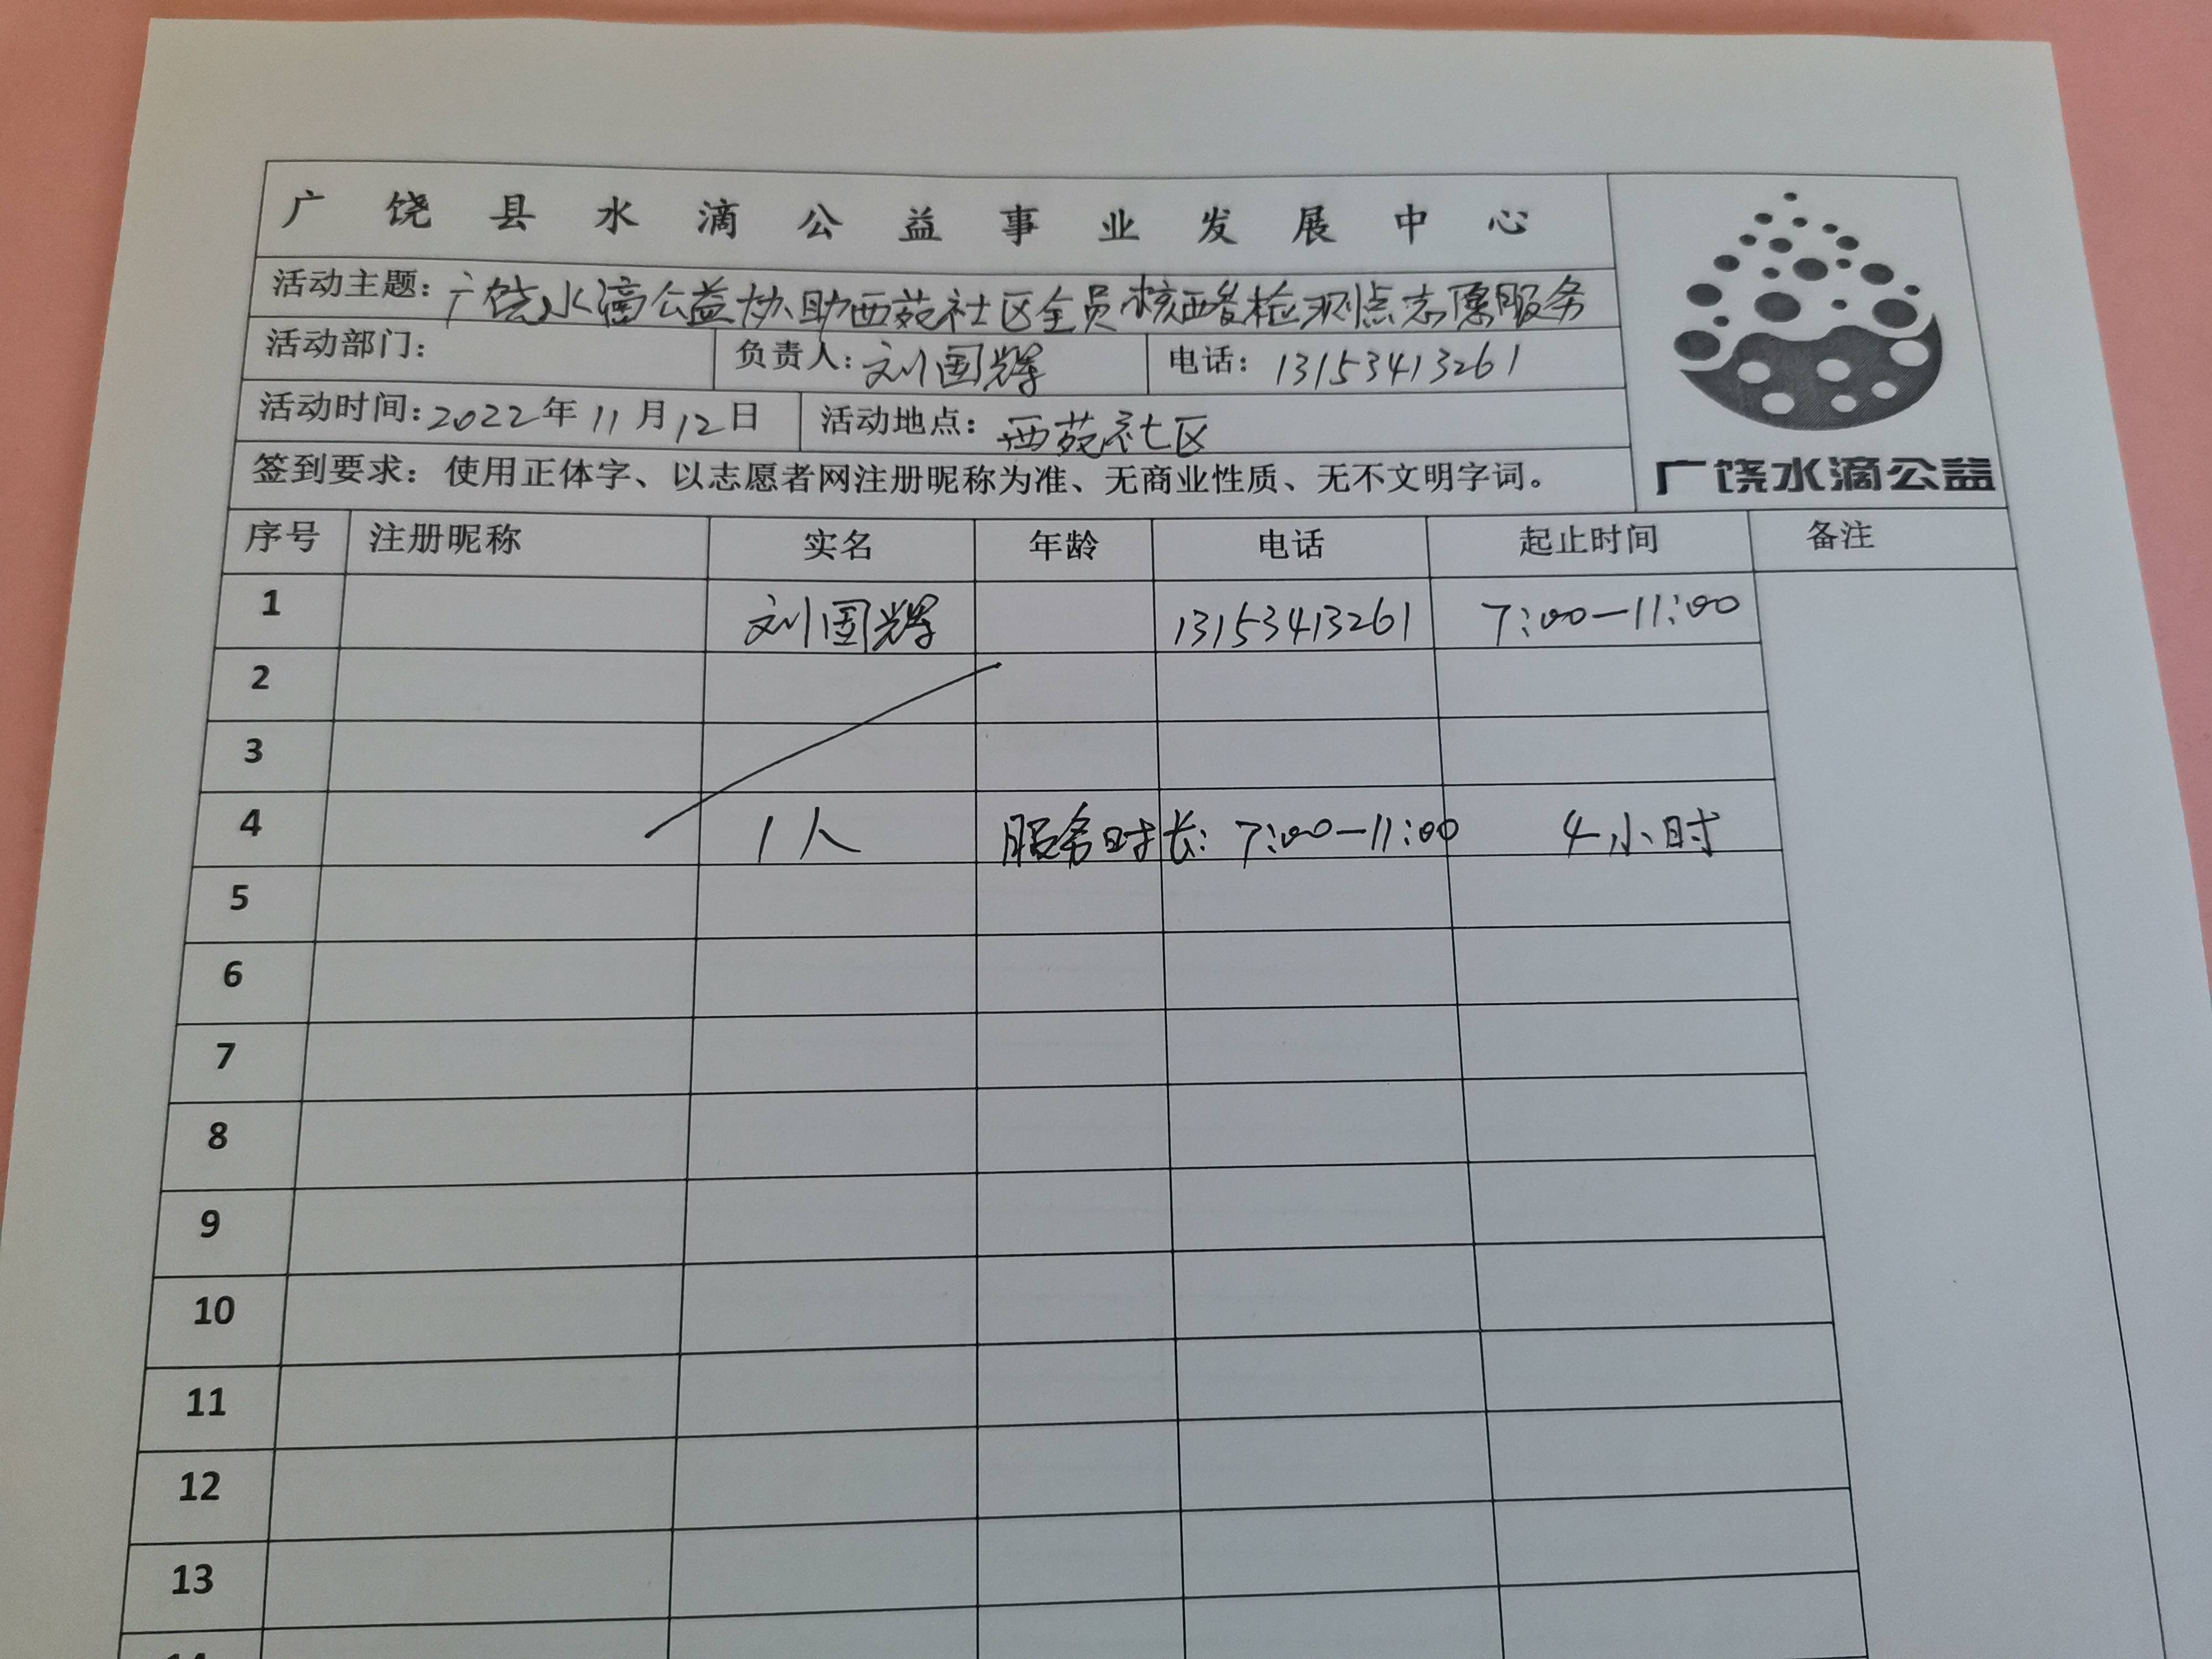 广饶县水滴公益事业发展中心
活动主题：广饶水滴公益协助西苑社区全员核酸检测点志愿服务
活动部门： 负责人：刘国辉 电话：13153413261
活动时间：2022年11月12日 活动地点：西苑社区
签到要求：使用正体字、以志愿者网注册昵称为准、无商业性质、无不文明字词。
广饶水滴公益
序号 注册昵称 实名 年龄 电话 起止时间 备注
1 刘国辉 13153413261 7:00—11:00
2
3
4 1人 服务时长：7:00—11:00 4小时
5
6
7
8
9
10
11
12
13
14